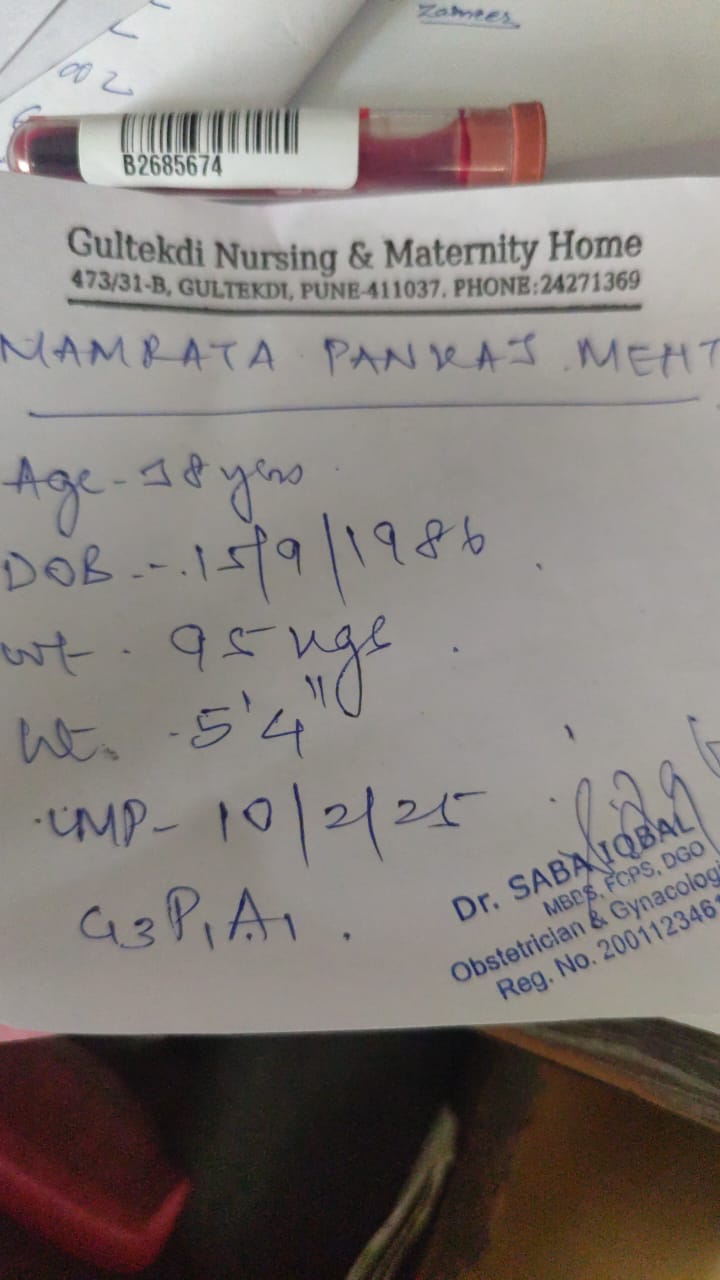 Zomees
002
B2685674
Gultekdi Nursing & Maternity Home
473/31-B, GULTEKDI, PUNE-411037. PHONE:24271369
NAMRATA PANKAJ MEHT
Age - 38 yers
DOB -. 15/9/1986
wt. 95 kgs
ht. - 5'4"
LMP - 10/2/25
G3P1A1.
Dr. SABA IQBAL
MBBS, FCPS, DGO
Obstetrician & Gynacologi
Reg. No. 2001123461